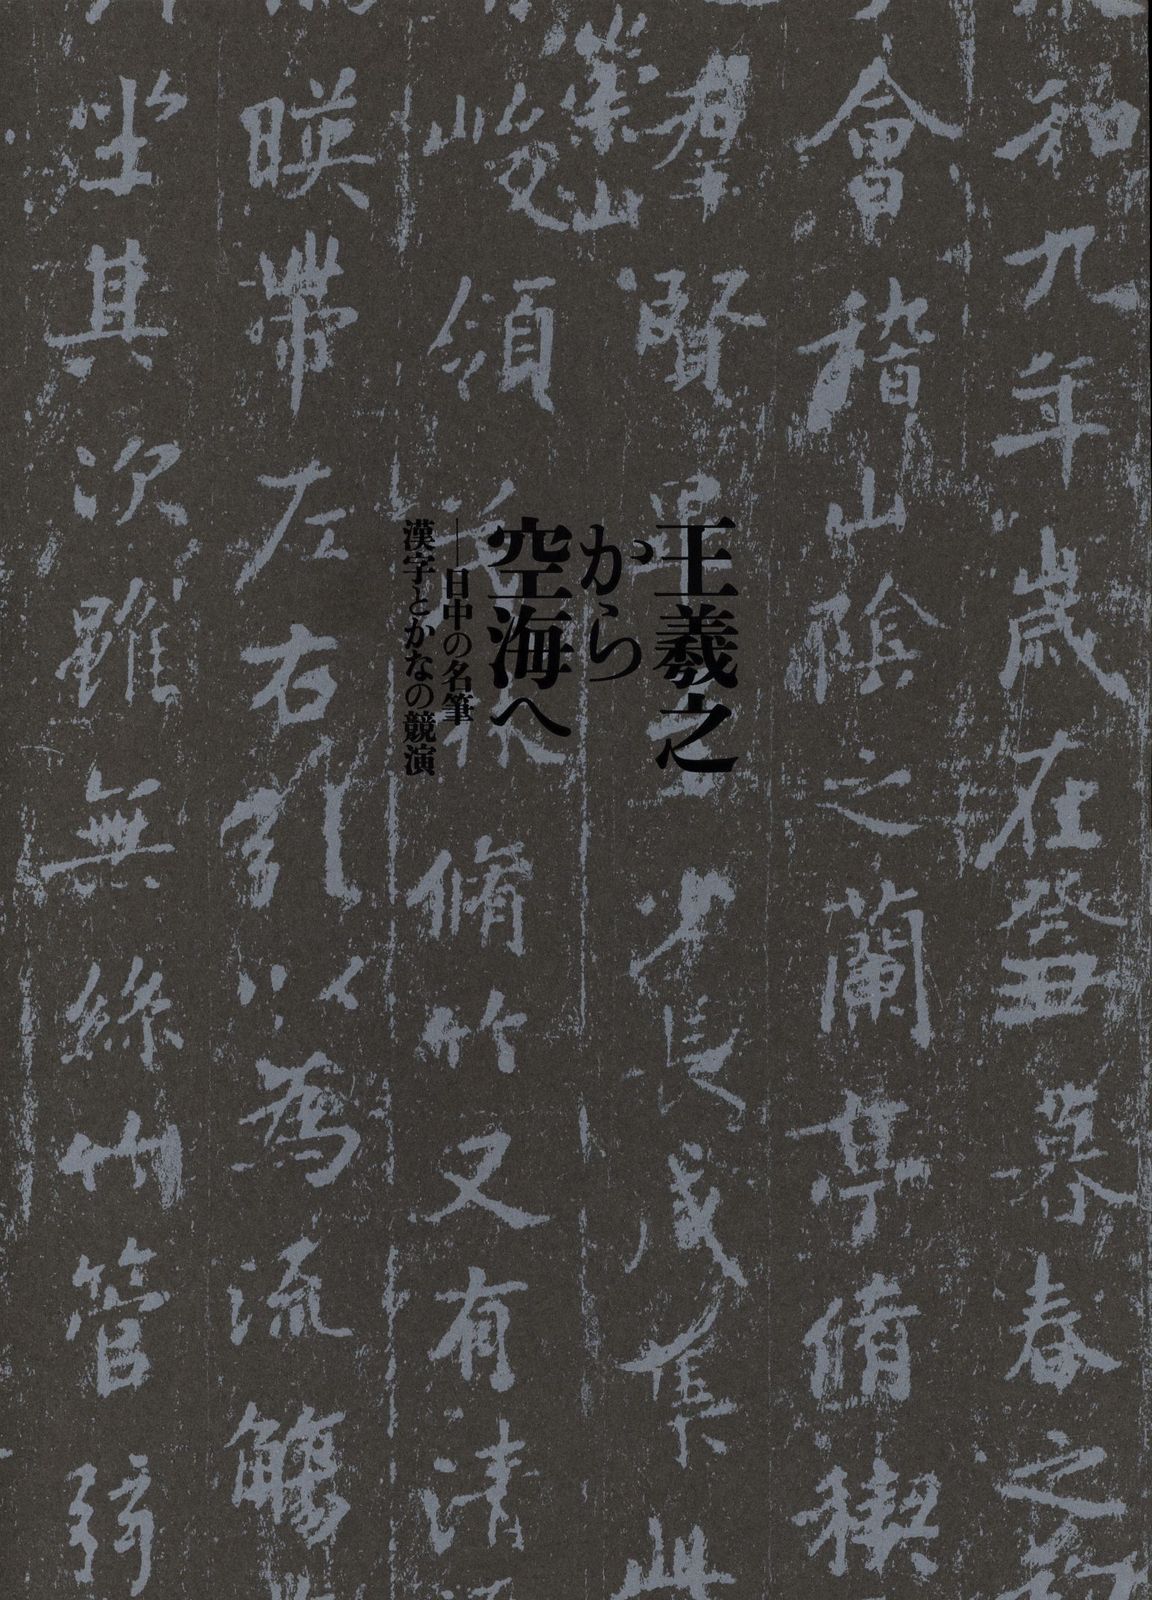 王羲之
から
空海へ
――日中の名筆
漢字とかなの競演
和九年歲在癸丑暮春之初
會稽山陰之蘭亭脩稧
羣賢畢至少長咸集此
崇山
峻領茂林脩竹又有清流
暎帶左右引以為流觴
坐其次雖無絲竹管弦